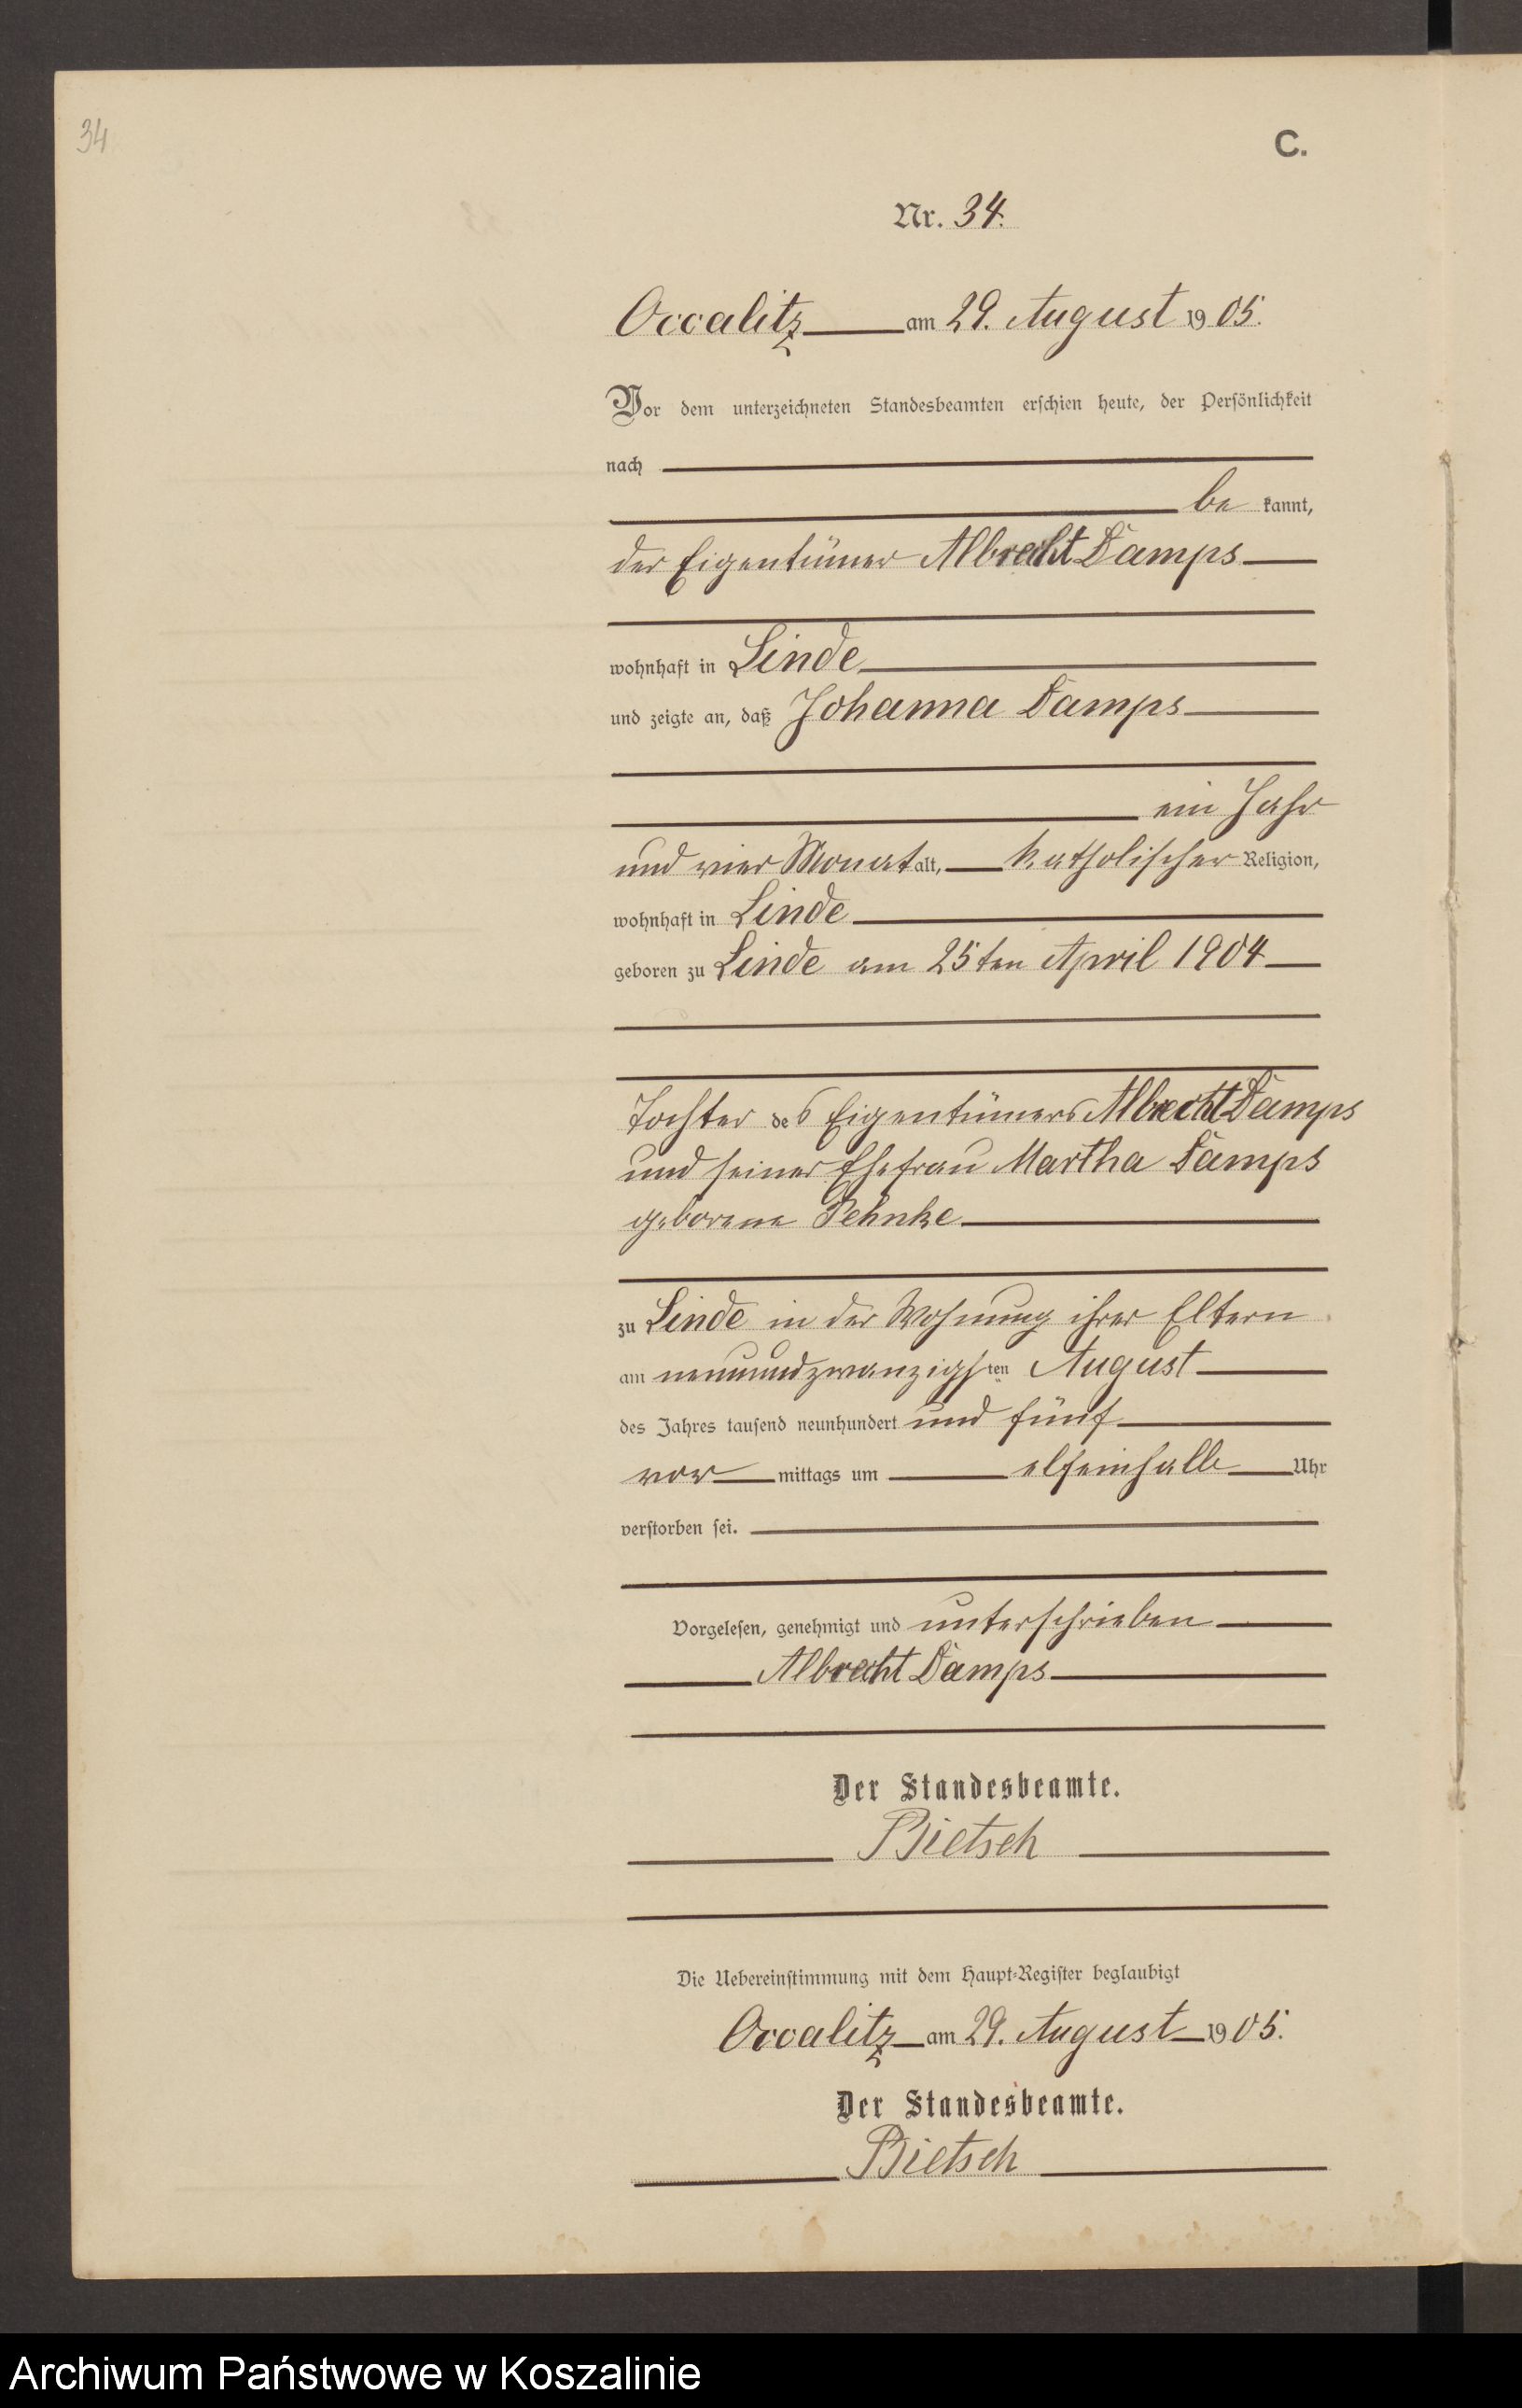 34
C.
Nr. 34.
Occalitz am 29. August 1905.
Vor dem unterzeichneten Standesbeamten erschien heute, der Persönlichkeit
nach
be kannt,
der Eigentümer Albrecht Damps
wohnhaft in Linde
und zeigte an, daß Johanna Damps
ein Jahr
und vier Monat alt, katholischer Religion,
wohnhaft in Linde
geboren zu Linde am 25ten April 1904
Tochter des Eigentümers Albrecht Damps
und seiner Ehefrau Martha Damps
geborene Pehnke
zu Linde in der Wohnung ihrer Eltern
am neunundzwanzigsten August
des Jahres tausend neunhundert und fünf
vor mittags um elfeinhalb Uhr
verstorben sei.
Vorgelesen, genehmigt und unterschrieben
Albrecht Damps
Der Standesbeamte.
Bietsch
Die Uebereinstimmung mit dem Haupt-Register beglaubigt
Occalitz am 29. August 1905.
Der Standesbeamte.
Bietsch
Archiwum Państwowe w Koszalinie